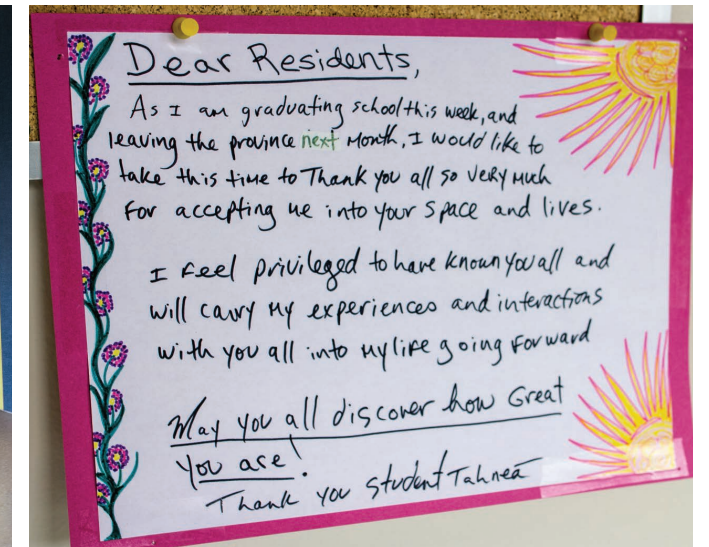 Dear Residents,
As I am graduating school this week, and
leaving the province next Month, I would like to
take this time to Thank you all so very much
for accepting me into your space and lives.
I feel privileged to have known you all and
will carry my experiences and interactions
with you all into my life going forward
May you all discover how Great
you are!
Thank you student Tahnea